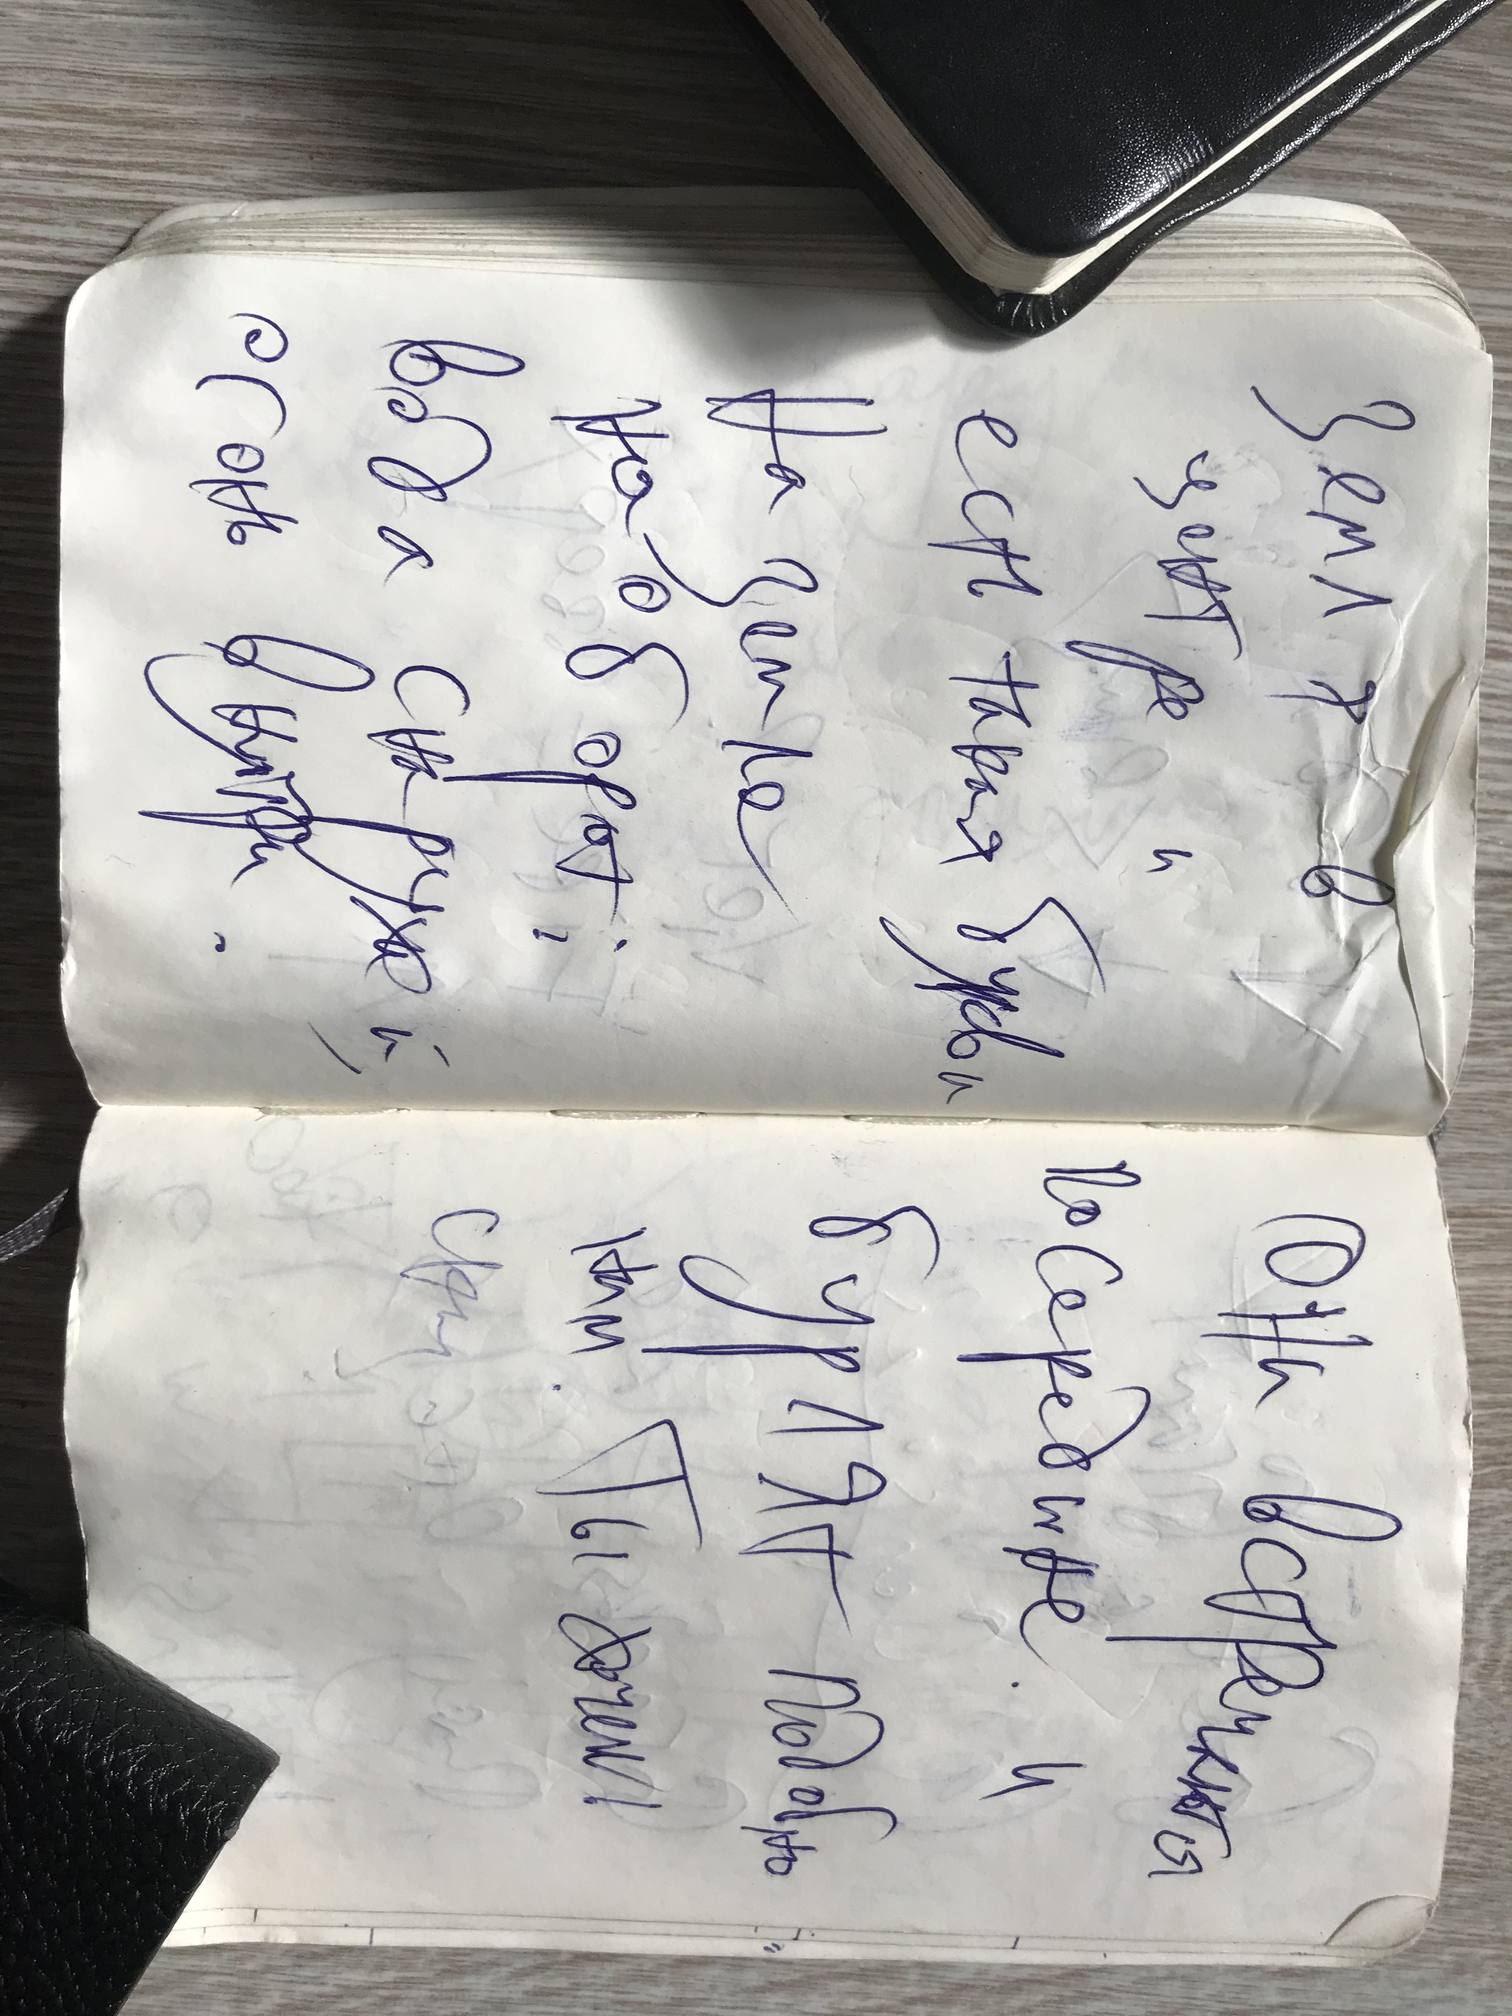 Земля в
центре и
есть такая буква
На земле
наоборот:
вода снаружи
огонь внутри.
Они встречаются
посередине. И
бурлят подобно
ним. Ты хочешь